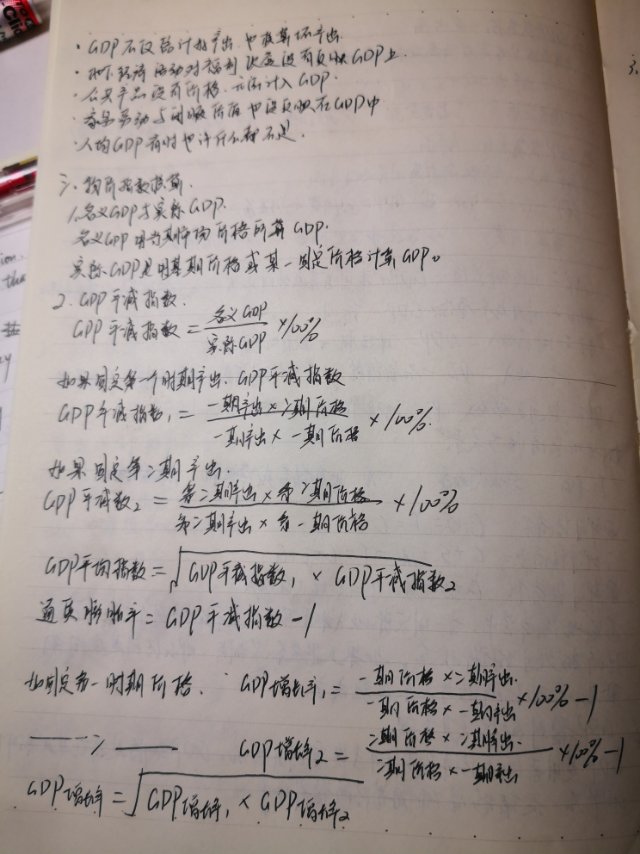 · GDP不仅估计好产出 也核算坏产出
· 地下经济活动对福利 没有反映GDP上
· 公共产品没有价格,无法计入GDP.
· 家务劳动与闲暇 价值也没反映在GDP中
· 人均GDP有时也许什么都不是.
三、物价指数核算.
1.名义GDP与实际GDP.
名义GDP用当期市场价格所算GDP.
实际GDP是用基期价格或某一固定价格计算GDP。
2. GDP平减指数.
GDP平减指数 = 名义GDP / 实际GDP ×100%
如果固定第一个时期产出, GDP平减指数
GDP平减指数₁ = 一期产出×二期价格 / 一期产出×一期价格 ×100%.
如果固定第二期产出.
GDP平减数₂ = 第二期产出×第二期价格 / 第二期产出×第一期价格 ×100%
GDP平均指数 = √GDP平减指数₁ × GDP平减指数₂
通货膨胀率 = GDP平减指数 -1
如固定第一时期价格. GDP增长率₁ = 一期价格×二期产出. / 一期价格×一期产出 ×100% -1
—— 二 —— GDP增长率₂ = 二期价格×二期产出. / 二期价格×一期产出 ×100% -1
GDP增长率 = √GDP增长率₁ × GDP增长率₂